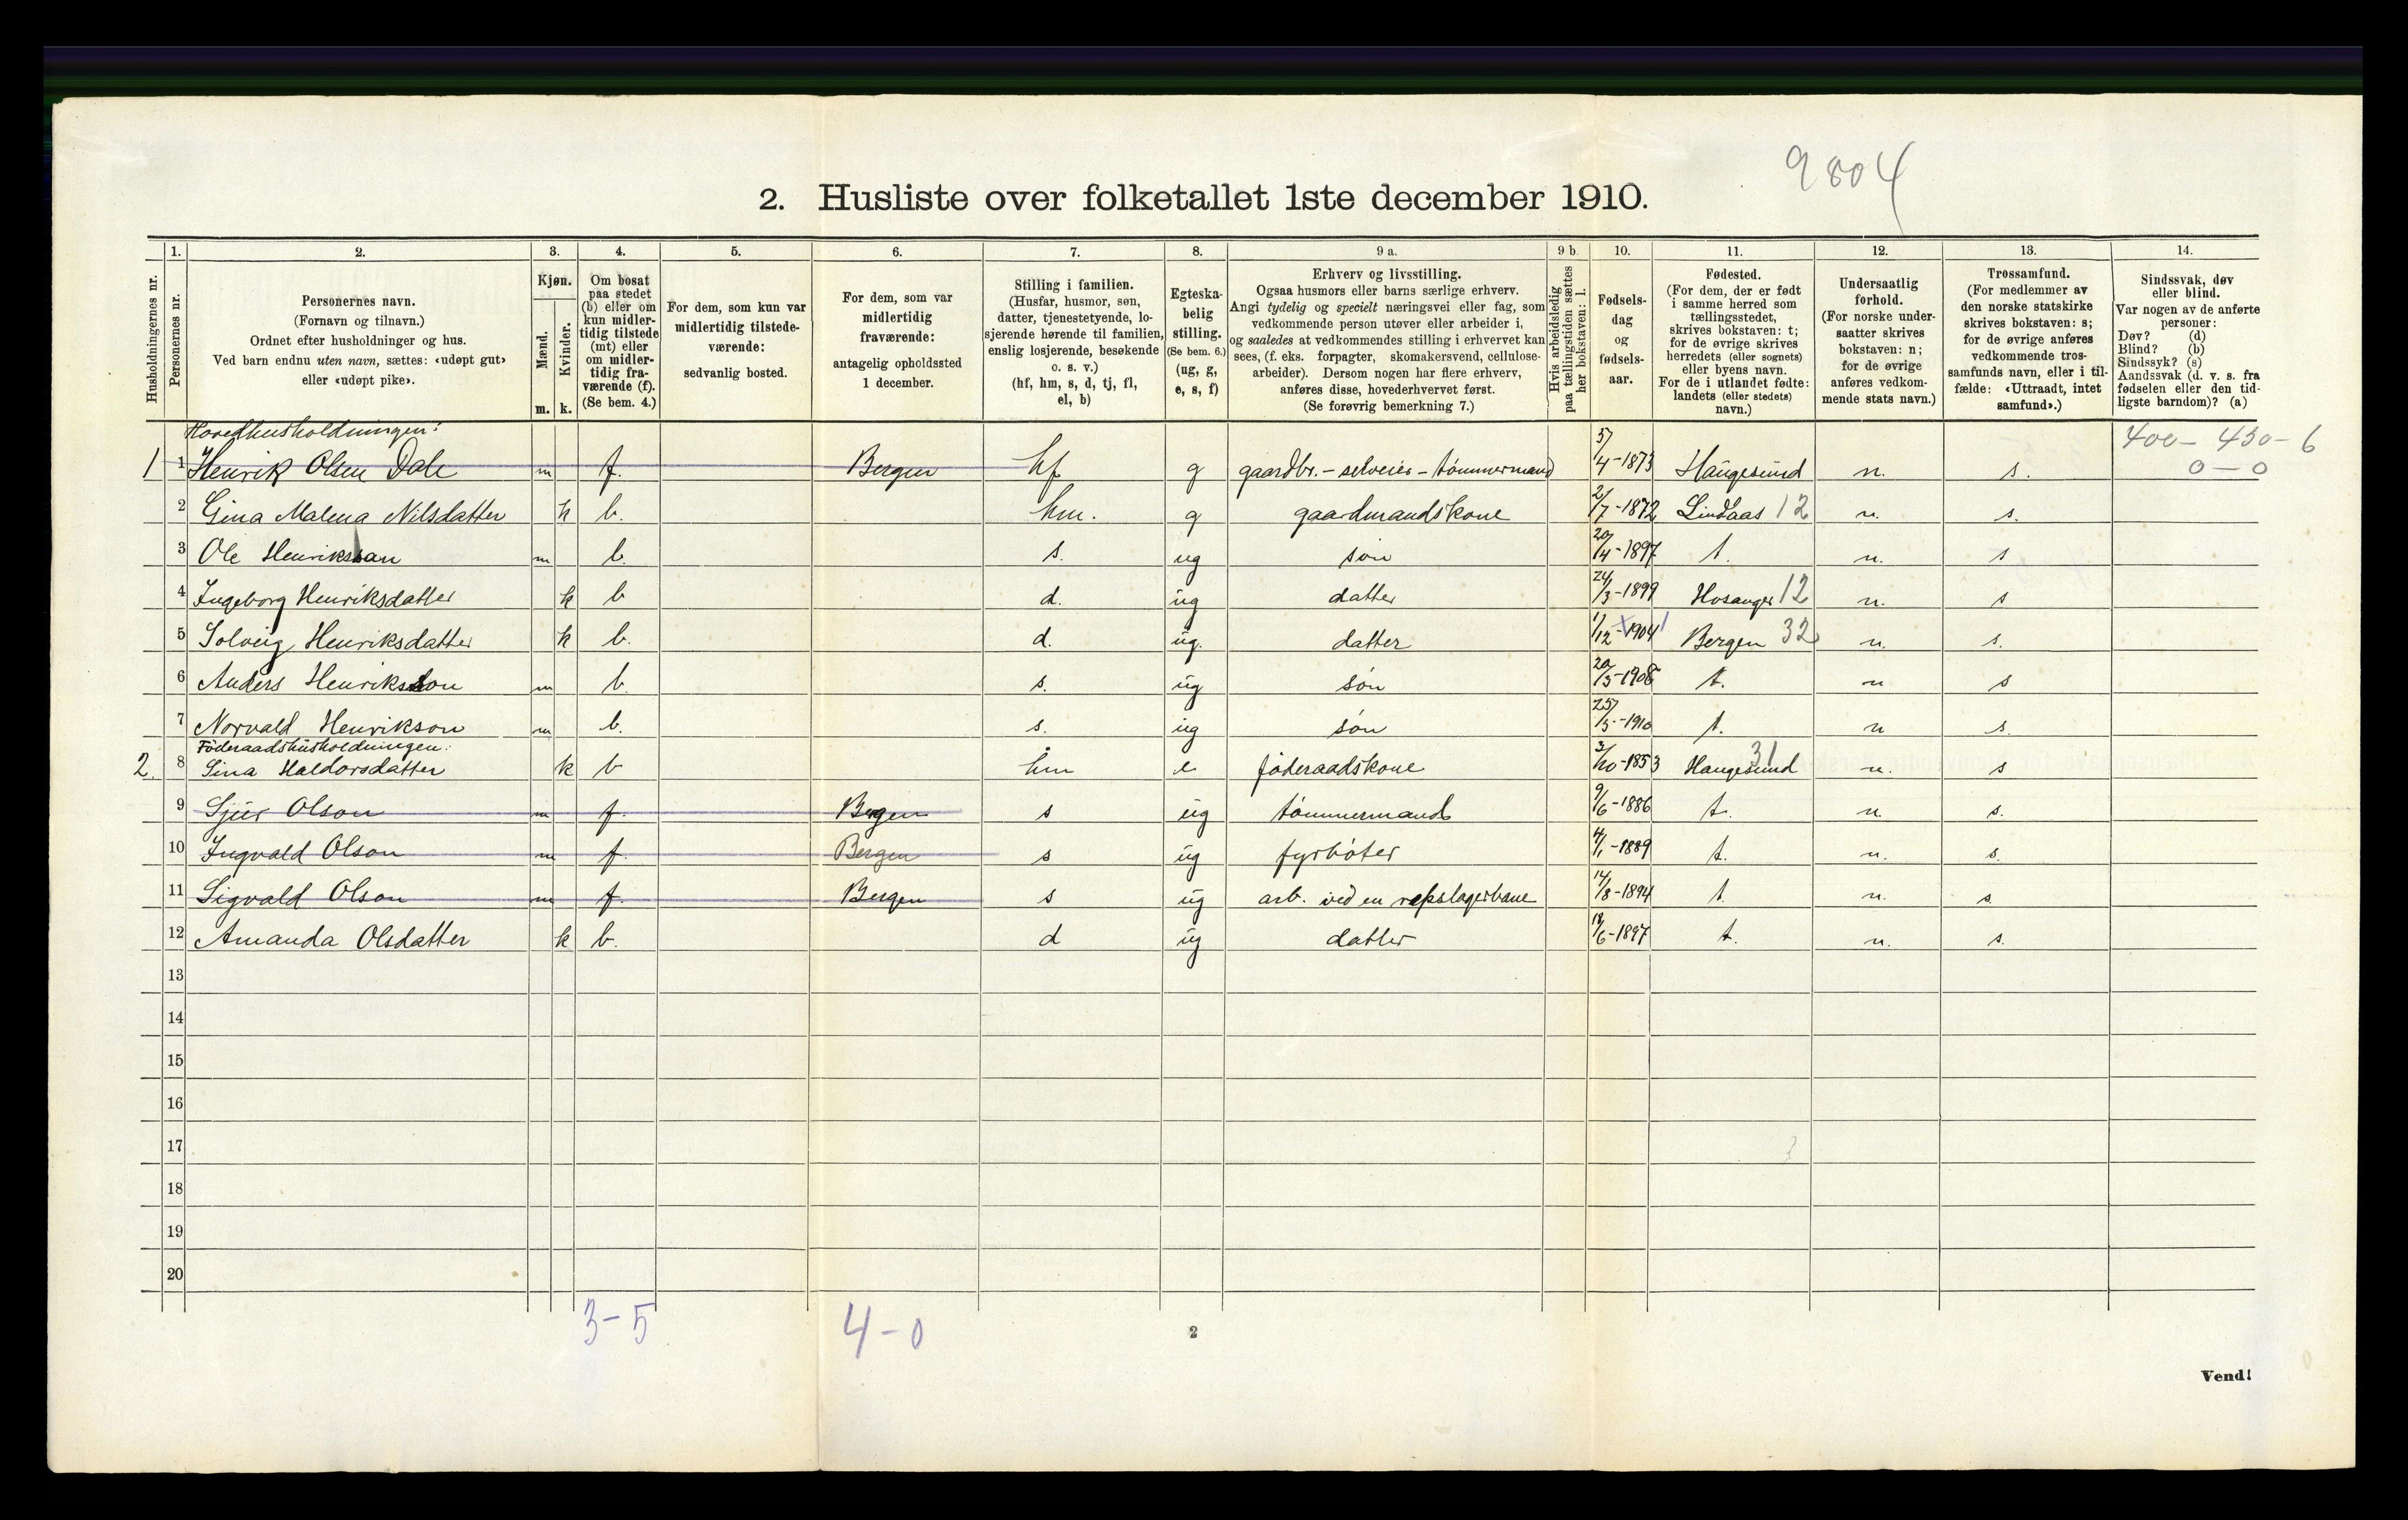 9804
2. Husliste over folketallet 1ste december 1910.
1. 2. 3. 4. 5. 6. 7. 8. 9 a. 9 b. 10. 11. 12. 13. 14.
Husholdningernes nr.
Personernes nr.
Personernes navn.
(Fornavn og tilnavn.)
Ordnet efter husholdninger og hus.
Ved barn endnu uten navn, sættes: «udøpt gut»
eller «udøpt pike».
Kjøn.
Mænd.
Kvinder.
m. k.
Om bosat
paa stedet
(b) eller om
kun midler-
tidig tilstede
(mt) eller
om midler-
tidig fra-
værende (f).
(Se bem. 4.)
For dem, som kun var
midlertidig tilstede-
værende:
sedvanlig bosted.
For dem, som var
midlertidig
fraværende:
antagelig opholdssted
1 december.
Stilling i familien.
(Husfar, husmor, søn,
datter, tjenestetyende, lo-
sjerende hørende til familien,
enslig losjerende, besøkende
o. s. v.)
(hf, hm, s, d, tj, fl,
el, b)
Egteska-
belig
stilling.
(Se bem. 6.)
(ug, g,
e, s, f)
Erhverv og livsstilling.
Ogsaa husmors eller barns særlige erhverv.
Angi tydelig og specielt næringsvei eller fag, som
vedkommende person utøver eller arbeider i,
og saaledes at vedkommendes stilling i erhvervet kan
sees, (f. eks. forpagter, skomakersvend, cellulose-
arbeider). Dersom nogen har flere erhverv,
anføres disse, hovederhvervet først.
(Se forøvrig bemerkning 7.)
Hvis arbeidsledig
paa tællingstiden sættes
her bokstaven: l.
Fødsels-
dag
og
fødsels-
aar.
Fødested.
(For dem, der er født
i samme herred som
tællingsstedet,
skrives bokstaven: t;
for de øvrige skrives
herredets (eller sognets)
eller byens navn.
For de i utlandet fødte:
landets (eller stedets)
navn.)
Undersaatlig
forhold.
(For norske under-
saatter skrives
bokstaven: n;
for de øvrige
anføres vedkom-
mende stats navn.)
Trossamfund.
(For medlemmer av
den norske statskirke
skrives bokstaven: s;
for de øvrige anføres
vedkommende tros-
samfunds navn, eller i til-
fælde: «Uttraadt, intet
samfund».)
Sindssvak, døv
eller blind.
Var nogen av de anførte
personer:
Døv? (d)
Blind? (b)
Sindssyk? (s)
Aandssvak (d. v. s. fra
fødselen eller den tid-
ligste barndom)? (a)
Hovedhusholdningen:
400 - 430 - 6
0 - 0
1 1 Henrik Olsen Dale m f. Bergen hf g gaardbr. - selveier - tømmermand 5/4-1873 Haugesund n. s.
2 Gina Malena Nilsdatter k b. hm. g gaardmandskone 2/7-1872 Lindaas 12 n. s.
3 Ole Henrikssan m b. s. ug søn 20/4-1897 t. n. s
4 Ingeborg Henriksdatter k b d. ug datter 24/3-1899 Hosanger 12 n. s
5 Solveig Henriksdatter k b. d. ug. datter 1/12-1904 Bergen 32 n. s.
6 Anders Henriksson m b. s. ug søn 20/5-1908 t. n s
7 Norvald Henrikson m b. s. ug søn 25/5-1910 t. n s.
Føderaadshusholdningen:
2. 8 Sina Haldorsdatter k b hm e føderaadskone 3/10-1853 Haugesund 31 n. s
9 Sjur Olson m f. Bergen s ug tømmermand 9/6-1886 t. n. s.
10 Ingvald Olson m f. Bergen s ug fyrbøter 4/1-1889 t. n. s.
11 Sigvald Olson m f. Bergen s ug arb. ved en repslagerbane 14/8-1894 t. n. s.
12 Amanda Olsdatter k b. d ug datter 18/6-1897 t. n. s.
13
14
15
16
17
18
19
20
3-5 4-0
2
Vend!